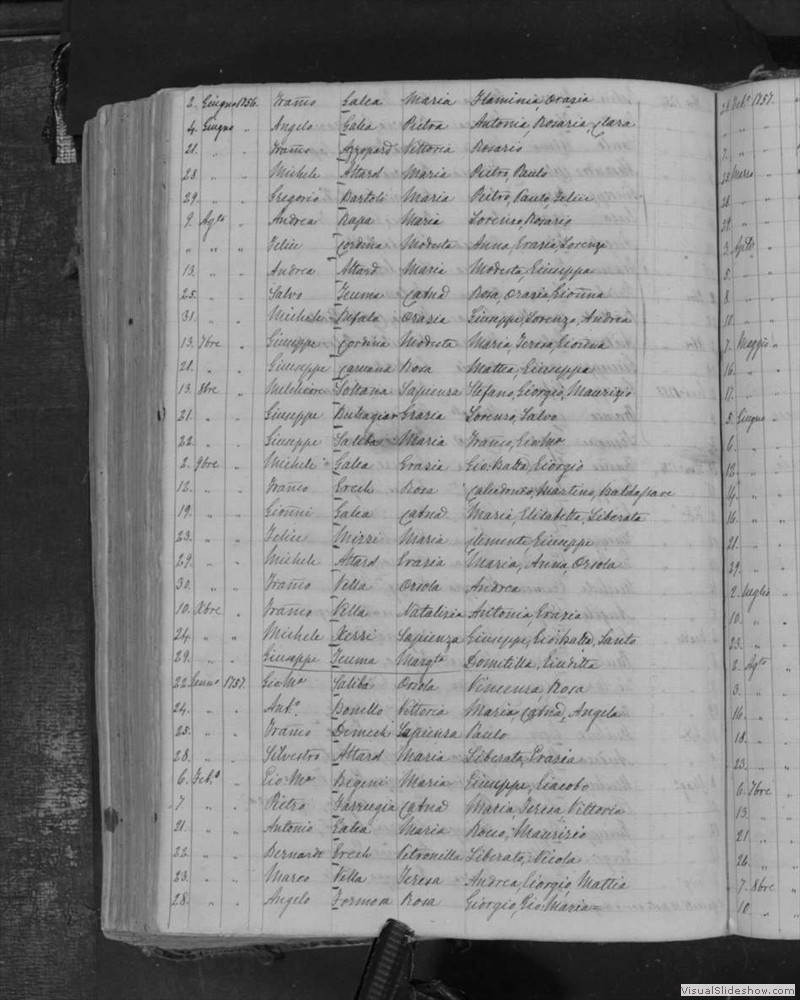 2. Giugno 1756. Franco Galea Maria Flaminia, Orazia
4. Giugno " Angelo Galea Pietra Antonia, Rosaria, Clara
21. " " Franco Azzopard Vittoria Rosario
28. " " Michele Attard Maria Pietro, Paulo
29. " " Gregorio Bartoli Maria Pietro, Paulo, Felice
9. Agto " Andrea Rapa Maria Lorenzo, Rosario
" " " Felice Cordina Modesta Anna, Grazia, Lorenza
13. " " Andrea Attard Maria Modesta, Giuseppa
25. " " Salvo Zeuma Catna Rosa, Grazia, Gionna
31. " " Michele Bufala Grazia Giuseppe, Lorenzo, Andrea
13. 7bre " Giuseppe Cordina Modesta Maria, Teresa, Gionna
21. " " Giuseppe Caruana Rosa Mattea, Giuseppa
13. 8bre " Melchiore Soltana Sapienza Stefano, Giorgio, Maurizio
21. " " Giuseppe Buhagiar Grazia Lorenzo, Salvo
22. " " Giuseppe Saliba Maria Franco, Gio Mo
2. 9bre " Michele Galea Grazia Gio Batta, Giorgio
12. " " Franco Grech Rosa Calcedonio, Martino, Baldassare
19. " " Gionni Galea Catna Maria, Elisabetta, Liberata
23. " " Felice Mizzi Maria Clemente, Giuseppe
29. " " Michele Attard Grazia Maria, Anna, Orsola
30. " " Franco Vella Orsola Andrea
10. Xbre " Franco Vella Natalizia Antonia, Grazia
24. " " Michele Xerri Sapienza Giuseppe, Gio Batta, Santo
29. " " Giuseppe Zeuma Margta Domitilla, Giuditta
22. Genno 1757. Gio Ma Saliba Orsola Vincenza, Rosa
24. " " Anto. Bonello Vittoria Maria, Catna, Angela
25. " " Franco Dimech Sapienza Paulo
28. " " Silvestro Attard Maria Liberata, Grazia
6. Feb.o " Gio Ma Bigeni Maria Giuseppe, Giacobo
7 " " Pietro Farrugia Catna Maria, Teresa, Vittoria
21. " " Antonio Galea Maria Rocco, Maurizio
22. " " Bernardo Grech Petronilla Liberato, Nicola
23. " " Marco Vella Teresa Andrea, Giorgio, Mattia
28. " " Angelo Formosa Rosa Giorgio, Gio Maria=
28 Feb.o 1757.
" "
2. "
22 Marzo
28. "
29. "
3. Aple
5. "
8. "
10. "
7. Maggio "
16. "
17. "
5. Giugno
6. "
12. "
14. "
16. "
21. "
29. "
2. Luglio "
10. "
23. "
2. Agto
3. "
16. "
18. "
23. "
6. 7bre
13. "
21. "
26. "
7. 8bre
10. "
VisualSlideshow.com